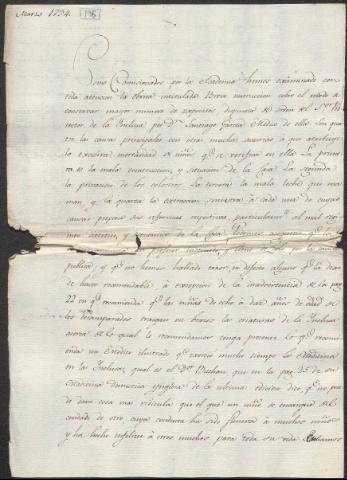 Marzo 1794.
196
Como Comisionados por la Academia hemos examinado con
toda atencion la obrita intitulada Breve instruccion sobre el modo de
conservar mayor numero de expositos dispuesta de orden del S.or Rec
tor de la Inclusa por D.n Santiago Garcia Medico de ella. Son qua
tro las causas principales con otras muchas anexas á que atribuye
la excesiva mortandad de niños q.e se verifica en ella. La prime
ra es la mala construccion, y situacion de la Casa. La segunda
la privacion de los efectos. La tercera la mala leche que ma
man, y la quarta la extremada miseria, á cada una de cuyas
causas propone sus reformas respectivas, particularm.te al mal regi
men dietetico, y
publica, y q.e no hemos hallado tener defecto alguno q.e la dexe
de hacer recomendable, á excepcion de la inadvertencia de la pag.
22 en q.e recomienda, que las niñas de ocho á doce años de edad de
los desamparados traigan en brazos las criaturas de la Inclusa
acerca de lo qual le recomendamos tenga presente lo q.e recomi
enda un Medico ilustrado q.e exerció mucho tiempo la Medicina
en las Inclusas, qual es el D.or Buchan que en la pag. 25 de su
Medicina domestica inglesa de la ultima edicion dice, q.e no pue
de darse cosa mas ridicula que el que un niño se encargue del
cuidado de otro cuya conducta ha sido funesta á muchos niños
y ha hecho infelices á otros muchos para toda su vida. Estamos